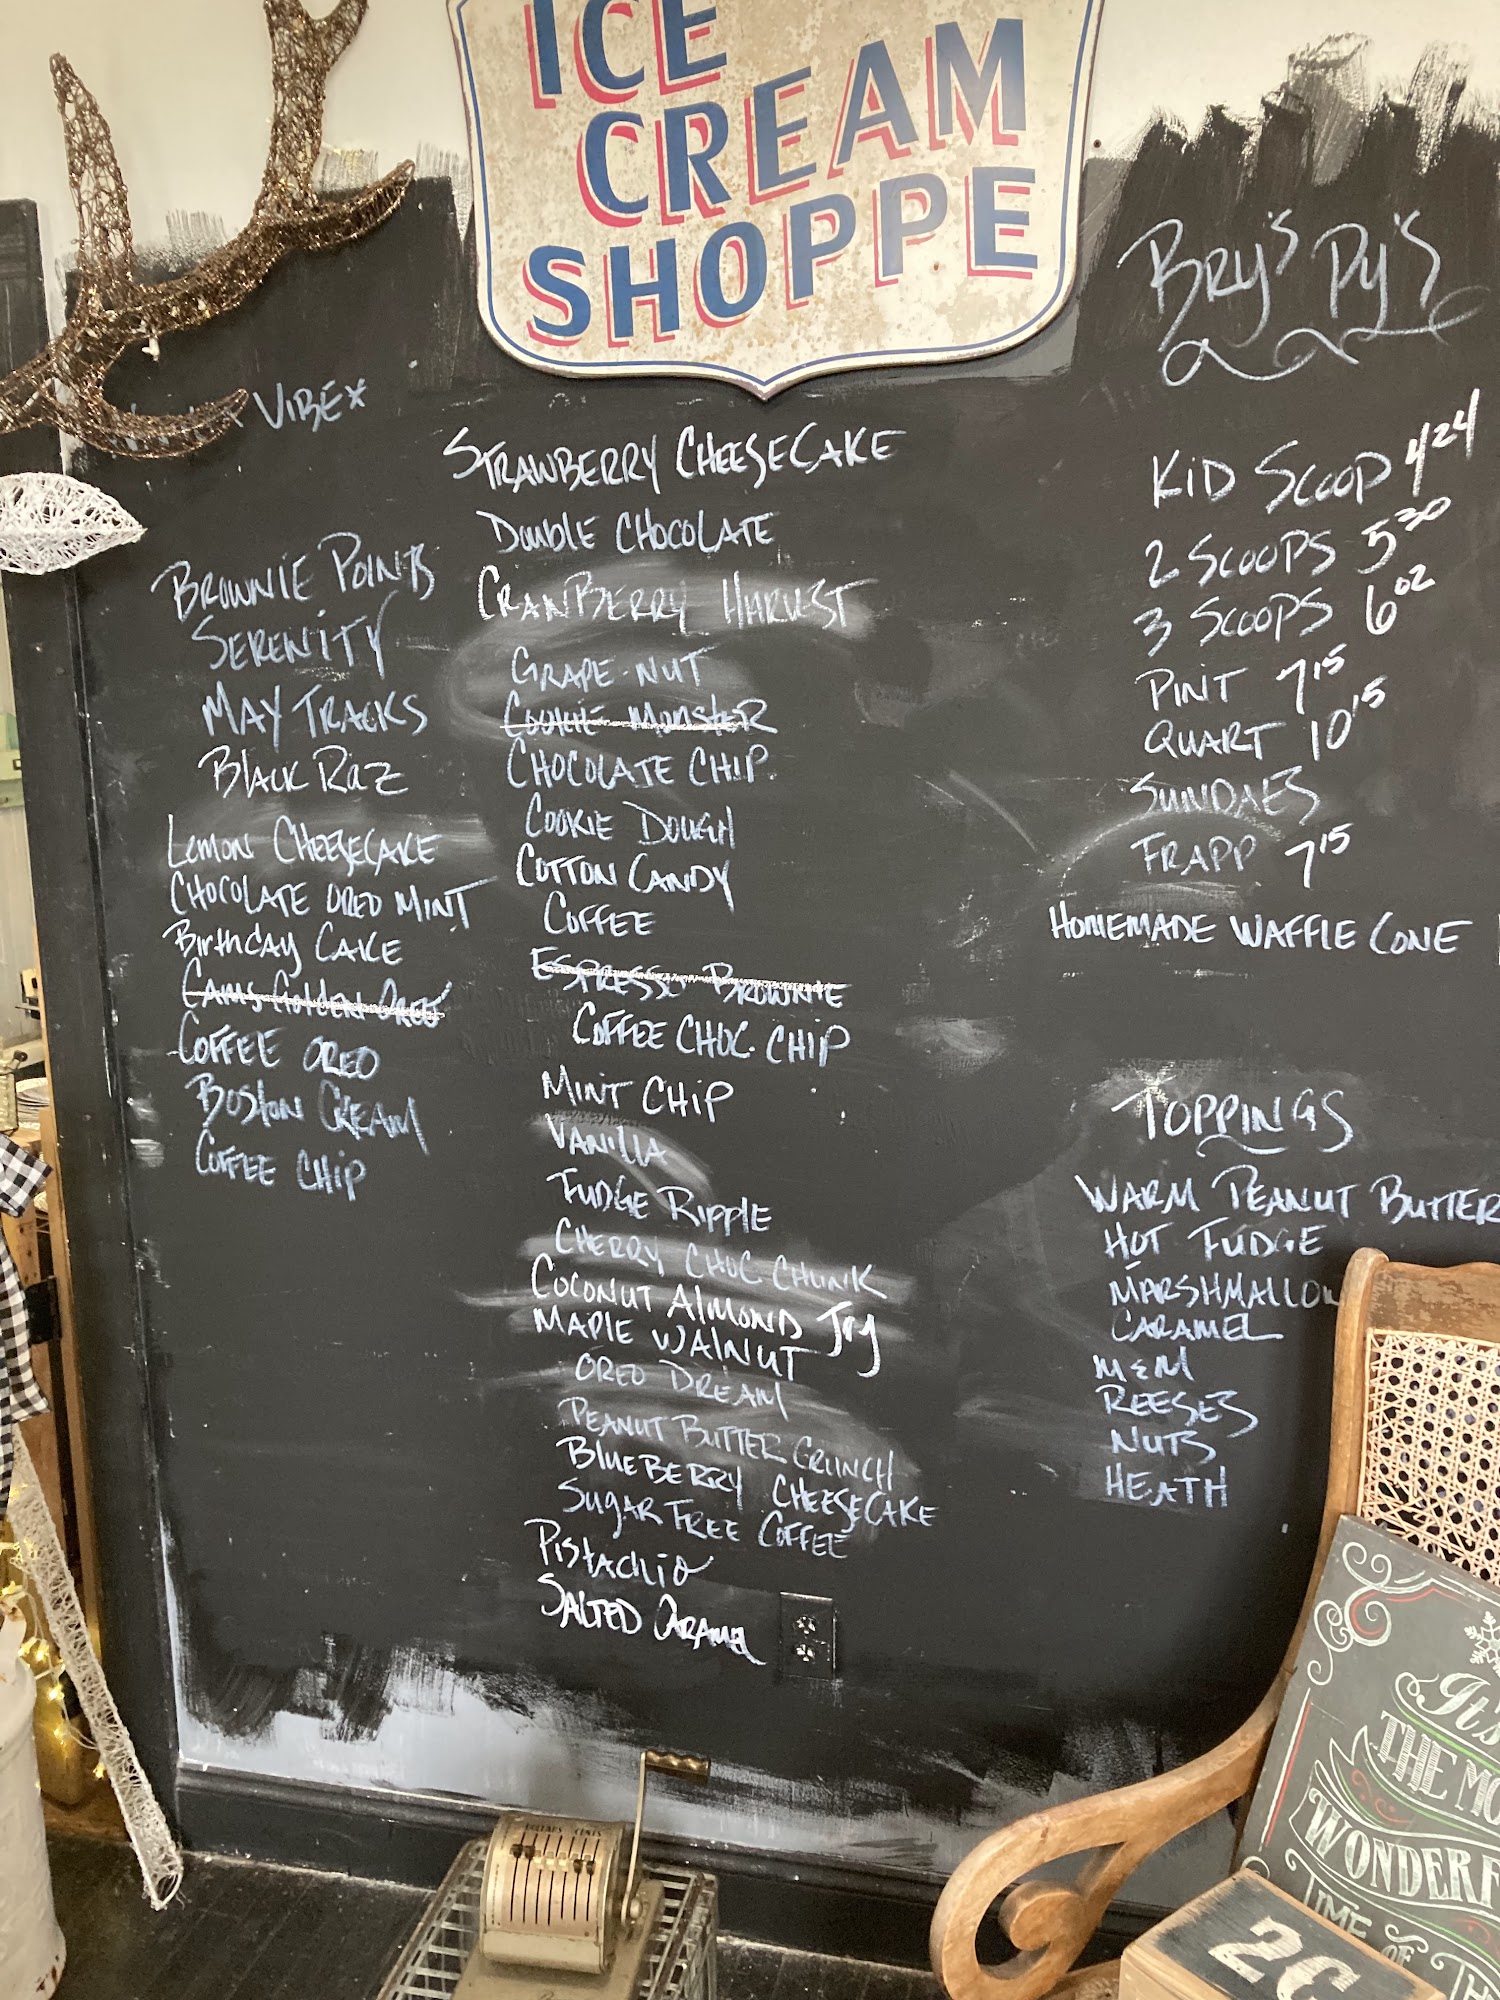 ICE
CREAM
SHOPPE
VIBE*
BROWNIE POINTS
SERENITY
MAY TRACKS
BLACK RAZ
LEMON CHEESECAKE
CHOCOLATE OREO MINT
BIRTHDAY CAKE
CAMS GOLDEN OREO
COFFEE OREO
BOSTON CREAM
COFFEE CHIP
STRAWBERRY CHEESECAKE
DOUBLE CHOCOLATE
CRANBERRY HARVEST
GRAPE-NUT
COOKIE MONSTER
CHOCOLATE CHIP
COOKIE DOUGH
COTTON CANDY
COFFEE
ESPRESSO BROWNIE
COFFEE CHOC. CHIP
MINT CHIP
VANILLA
FUDGE RIPPLE
CHERRY CHOC CHUNK
COCONUT ALMOND JOY
MAPLE WALNUT
OREO DREAM
PEANUT BUTTER CRUNCH
BLUEBERRY CHEESECAKE
SUGAR FREE COFFEE
PISTACHIO
SALTED CARAMEL
BRY'S PY'S
KID SCOOP 4 24
2 SCOOPS 5 30
3 SCOOPS 6 02
PINT 7 15
QUART 10 15
SUNDAES
FRAPP 7 15
HOMEMADE WAFFLE CONE
TOPPINGS
WARM PEANUT BUTTER
HOT FUDGE
MARSHMALLOW
CARAMEL
M&M
REESES
NUTS
HEATH
DOLLARS CENTS
It's
THE MO
WONDERF
TIME OF TH